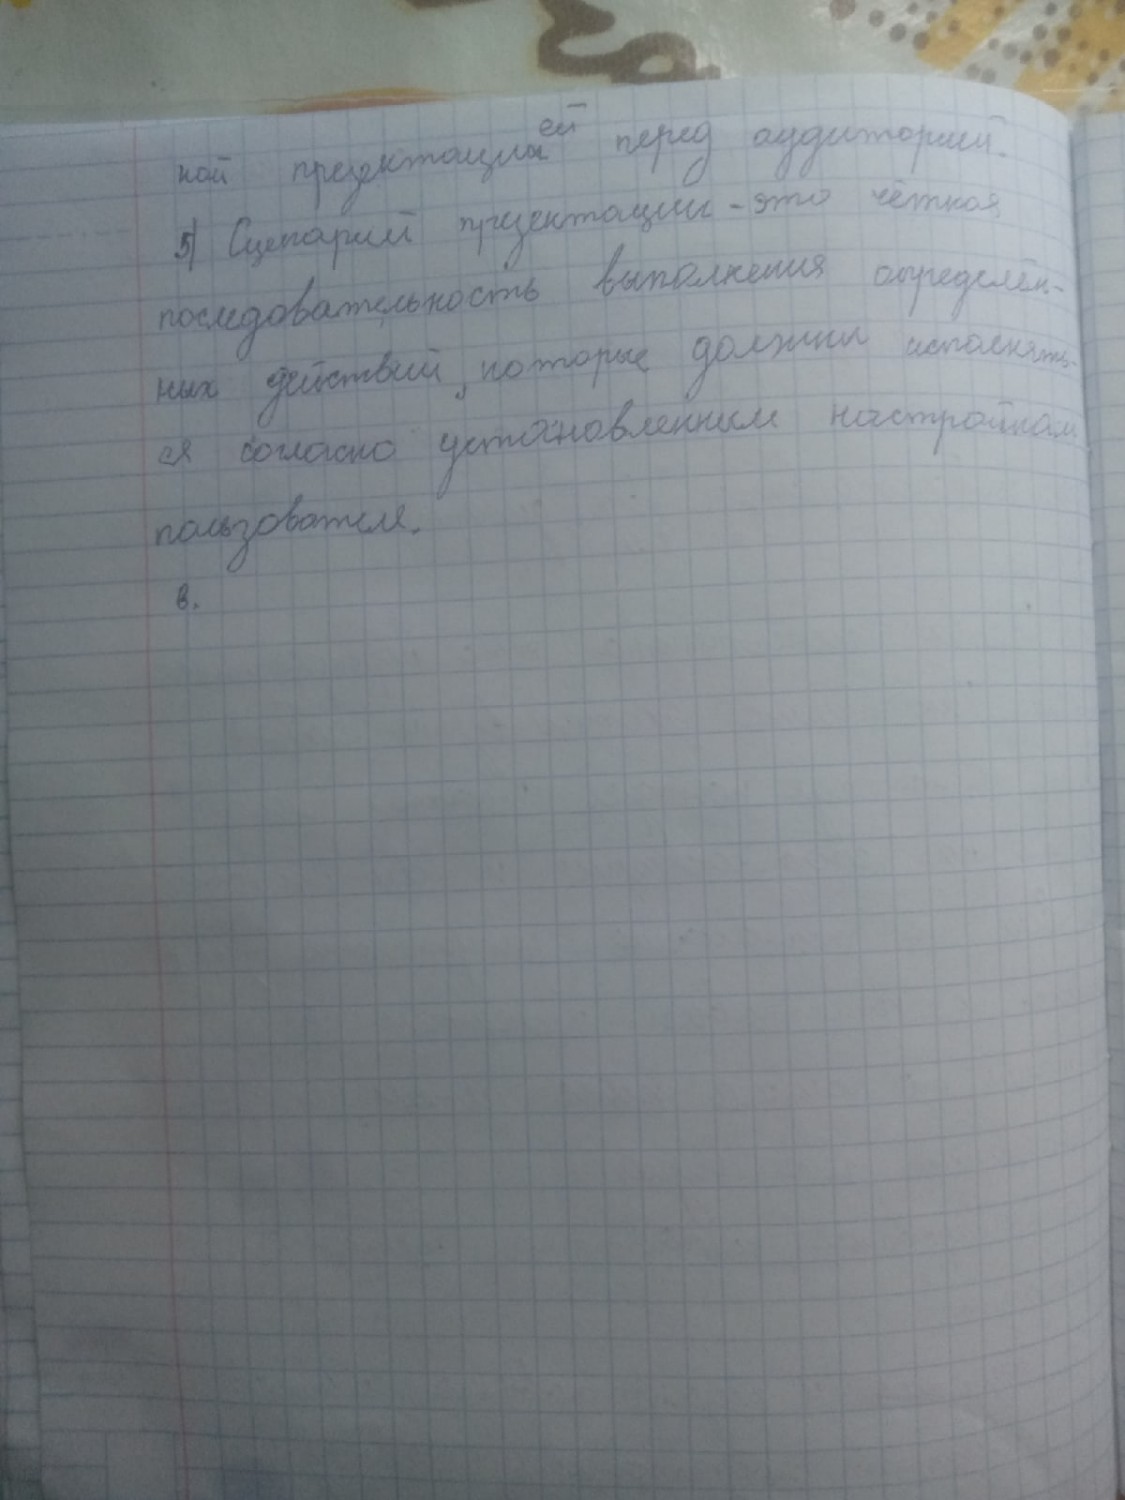 ной презентацией перед аудиторией.
5) Сценарий презентации - это чёткая
последовательность выполнения определён-
ных действий, которые должны исполнять-
ся согласно установленным настройкам
пользователя.
в.